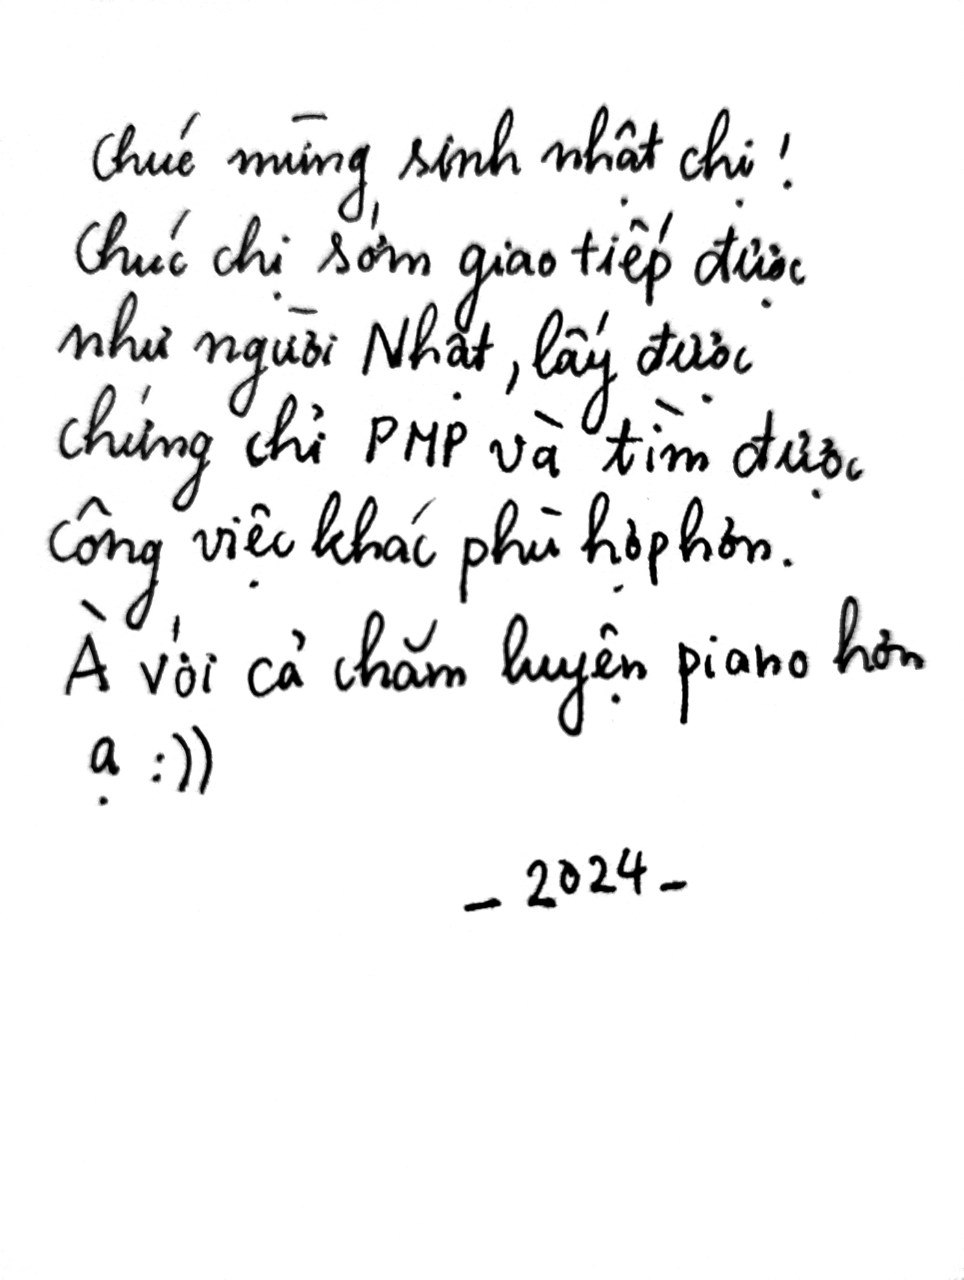 Chúc mừng sinh nhật chị!
Chúc chị sớm giao tiếp được
như người Nhật, lấy được
chứng chỉ PMP và tìm được
công việc khác phù hợp hơn.
À với cả chăm luyện piano hơn
ạ :))
- 2024 -